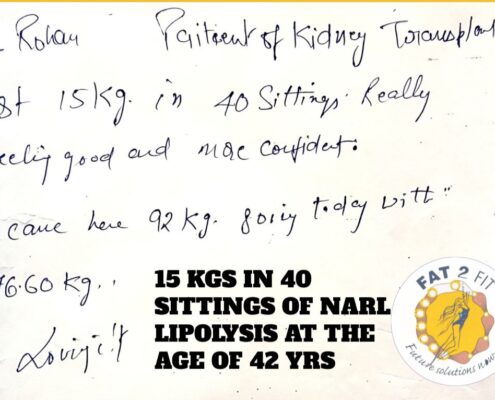 Rohan Paitent of Kidney Transplan
st 15 Kg. in 40 Sittings. Really
eeling good and more confident.
came here 92 Kg. going today with
76.60 Kg..
15 KGS IN 40
SITTINGS OF NARL
LIPOLYSIS AT THE
AGE OF 42 YRS
FAT 2 FIT
Future solutions now